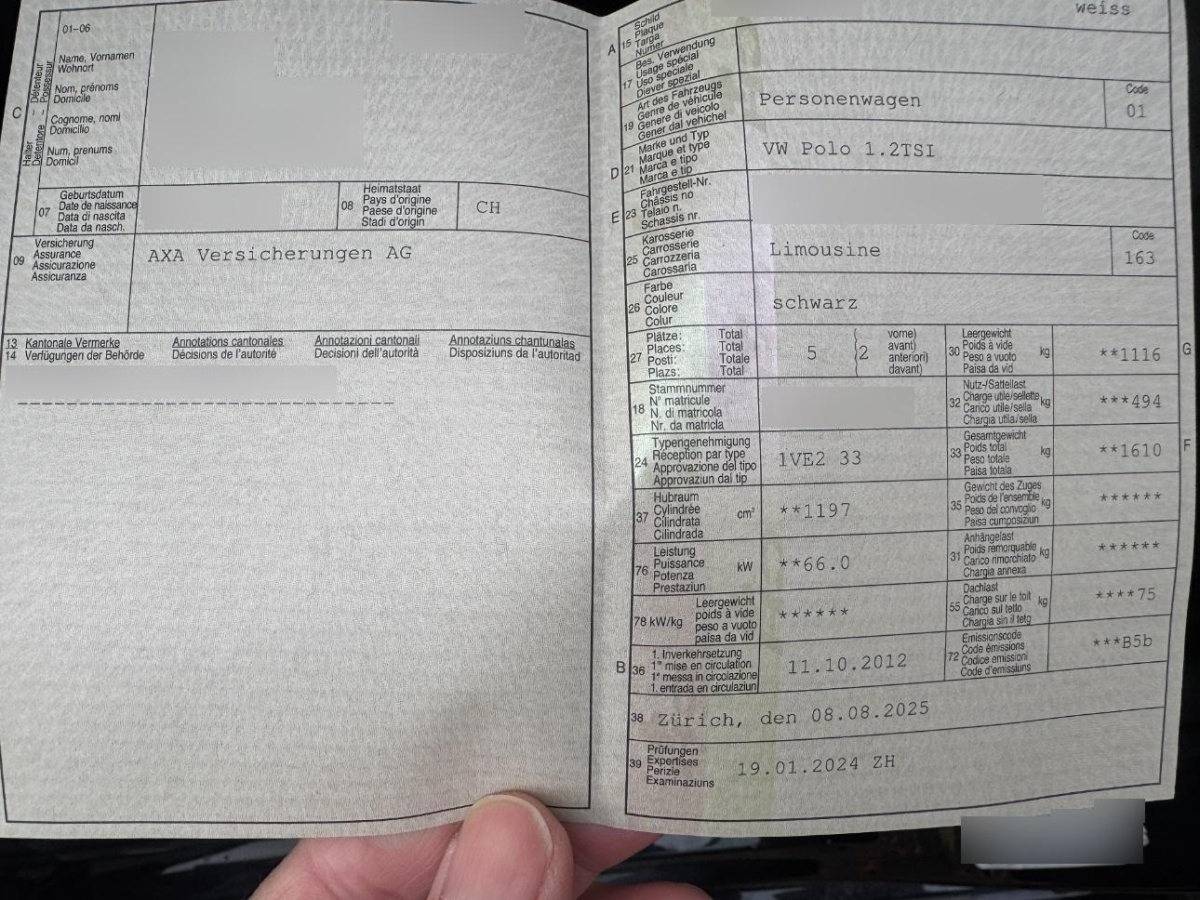 01-06
C
Halter
Détenteur - Possesseur
Detentore -
Name, Vornamen
Wohnort
Nom, prénoms
Domicile
Cognome, nomi
Domicilio
Num, prenums
Domicil
07
Geburtsdatum
Date de naissance
Data di nascita
Data da nasch.
08
Heimatstaat
Pays d'origine
Paese d'origine
Stadi d'origin
CH
09
Versicherung
Assurance
Assicurazione
Assicuranza
AXA Versicherungen AG
13 Kantonale Vermerke Annotations cantonales Annotazioni cantonali Annotaziuns chantunalas
14 Verfügungen der Behörde Décisions de l'autorité Decisioni dell'autorità Disposiziuns da l'autoritad
A
15
Schild
Plaque
Targa
Numer
weiss
17
Bes. Verwendung
Usage spécial
Uso speciale
Diever spezial
19
Art des Fahrzeugs
Genre de véhicule
Genere di veicolo
Gener dal vehichel
Personenwagen
Code
01
D
21
Marke und Typ
Marque et type
Marca e tipo
Marca e tip
VW Polo 1.2TSI
E
23
Fahrgestell-Nr.
Châssis no
Telaio n.
Schassis nr.
25
Karosserie
Carrosserie
Carrozzeria
Carossaria
Limousine
Code
163
26
Farbe
Couleur
Colore
Colur
schwarz
27
Plätze: Total
Places: Total
Posti: Totale
Plazs: Total
5
2
vorne)
avant)
anteriori)
davant)
30
Leergewicht
Poids à vide
Peso a vuoto
Paisa da vid
kg
**1116
G
18
Stammnummer
N° matricule
N. di matricola
Nr. da matricla
32
Nutz-/Sattellast
Charge utile/sellette
Carico utile/sella
Chargia utila/sella
kg
***494
24
Typengenehmigung
Réception par type
Approvazione del tipo
Approvaziun dal tip
1VE2 33
33
Gesamtgewicht
Poids total
Peso totale
Paisa totala
kg
**1610
F
37
Hubraum
Cylindrée
Cilindrata
Cilindrada
cm³
**1197
35
Gewicht des Zuges
Poids de l'ensemble
Peso del convoglio
Paisa cumposiziun
kg
******
76
Leistung
Puissance
Potenza
Prestaziun
kW
**66.0
31
Anhängelast
Poids remorquable
Carico rimorchiato
Chargia annexa
kg
******
78 kW/kg
Leergewicht
poids à vide
peso a vuoto
paisa da vid
******
55
Dachlast
Charge sur le toit
Carico sul tetto
Chargia sin il tetg
kg
****75
B
36
1. Inverkehrsetzung
1re mise en circulation
1a messa in circolazione
1. entrada en circulaziun
11.10.2012
72
Emissionscode
Code émissions
Codice emissioni
Code d'emissiuns
***B5b
38 Zürich, den 08.08.2025
39
Prüfungen
Expertises
Perizie
Examinaziuns
19.01.2024 ZH